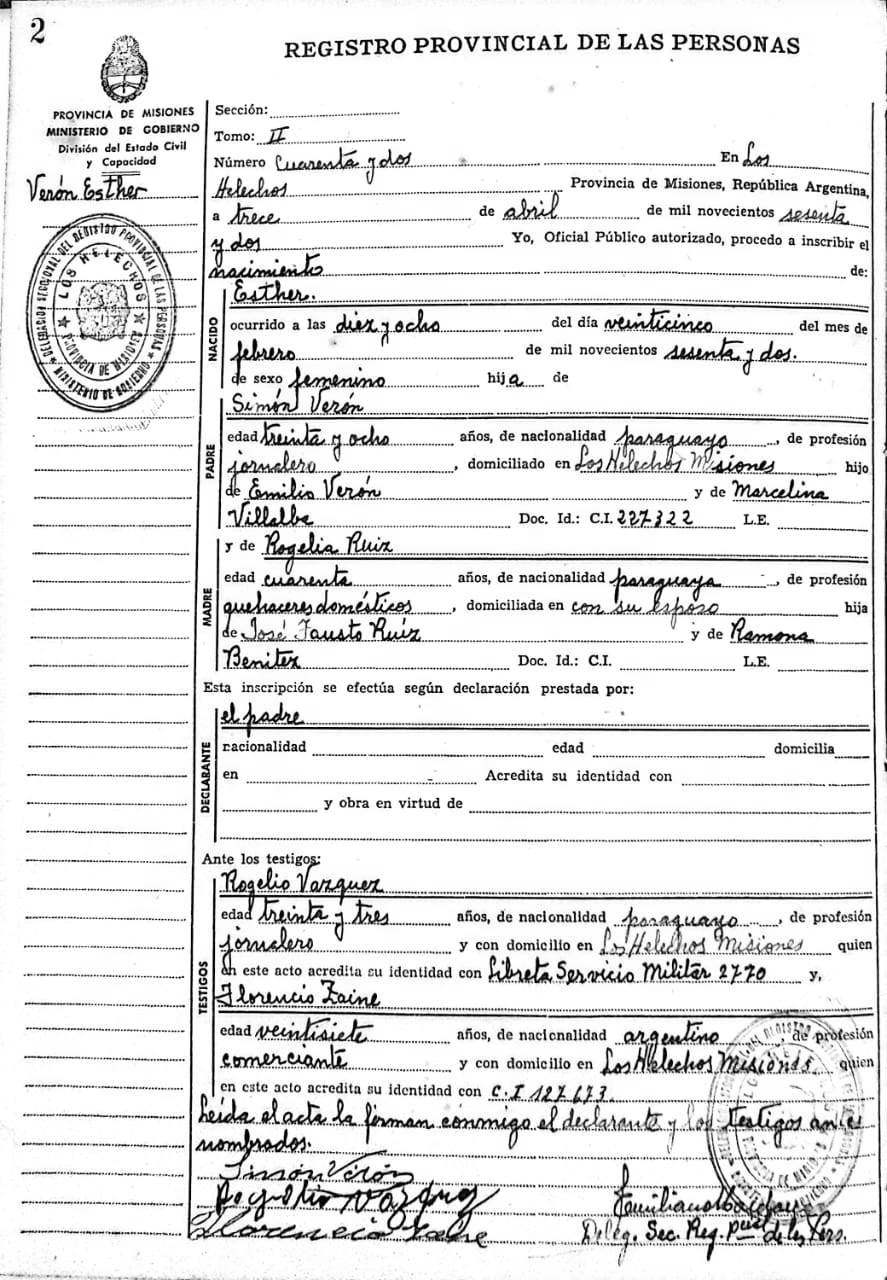 2
REGISTRO PROVINCIAL DE LAS PERSONAS
PROVINCIA DE MISIONES
MINISTERIO DE GOBIERNO
División del Estado Civil
y Capacidad
Verón Esther
DELEGACION SECCIONAL DEL REGISTRO PROVINCIAL DE LAS PERSONAS
LOS HELECHOS
PROVINCIA DE MISIONES
MINISTERIO DE GOBIERNO
Sección:
Tomo: II
Número Cuarenta y dos En Los
Helechos Provincia de Misiones, República Argentina,
a trece de abril de mil novecientos sesenta
y dos Yo, Oficial Público autorizado, procedo a inscribir el
nacimiento de:
NACIDO
Esther.
ocurrido a las diez y ocho del día veinticinco del mes de
febrero de mil novecientos sesenta y dos.
de sexo femenino hija de
PADRE
Simón Verón
edad treinta y ocho años, de nacionalidad paraguayo, de profesión
jornalero, domiciliado en Los Helechos Misiones hijo
de Emilio Verón y de Marcelina
Villalba Doc. Id.: C.I. 227322 L.E.
MADRE
y de Rogelia Ruiz
edad cuarenta años, de nacionalidad paraguaya, de profesión
quehaceres domésticos, domiciliada en con su esposo hija
de José Fausto Ruíz y de Ramona
Benitez Doc. Id.: C.I. L.E.
Esta inscripción se efectúa según declaración prestada por:
DECLARANTE
el padre
nacionalidad edad domicilia
en Acredita su identidad con
y obra en virtud de
Ante los testigos:
TESTIGOS
Rogelio Vazquez
edad treinta y tres años, de nacionalidad paraguayo, de profesión
jornalero y con domicilio en Los Helechos Misiones quien
en este acto acredita su identidad con Libreta Servicio Militar 2770 y,
Florencio Zaine
edad veintisiete años, de nacionalidad argentino, de profesión
comerciante y con domicilio en Los Helechos Misiones. quien
en este acto acredita su identidad con C.I 127673.
Leída el acta la firman conmigo el declarante y los testigos antes
nombrados.
Simón Verón
Rogelio Vazquez
Florencio Zaine
Deleg. Sec. Reg. Pcial de las Pers.